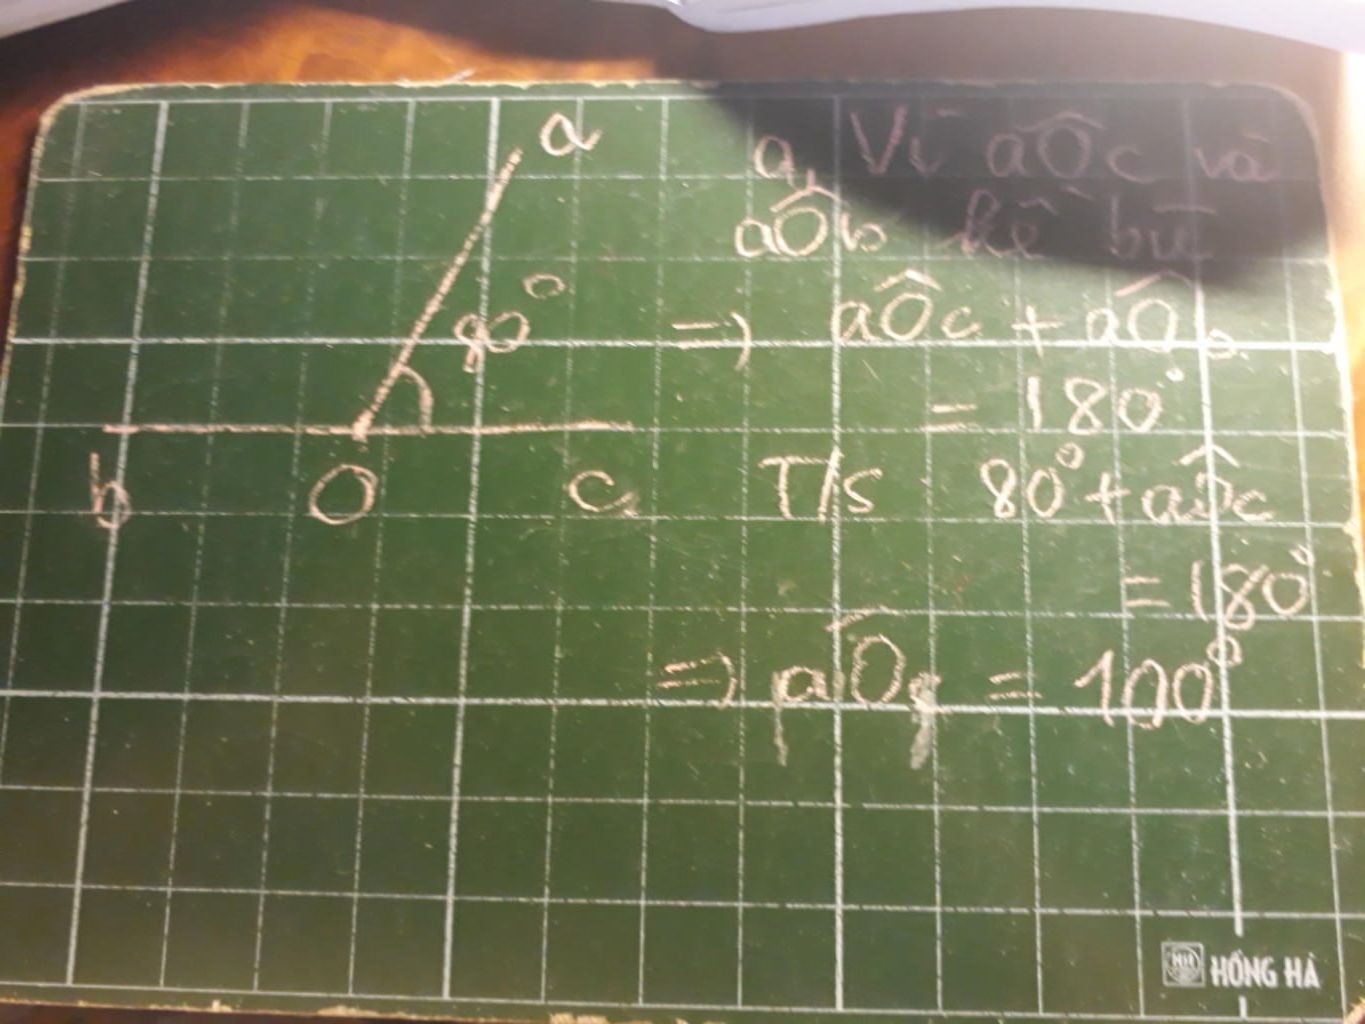 a
80°
b O c
a, Vì aÔc và
aÔb kề bù
=> aÔc + aÔb
= 180°
T/s 80° + aÔc
= 180°
=> aÔc = 100°
HH HỒNG HÀ